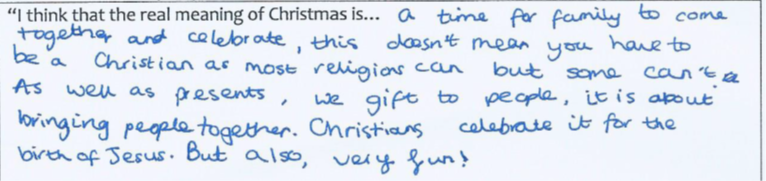 "I think that the real meaning of Christmas is... a time for family to come
together and celebrate, this doesn't mean you have to
be a Christian as most religions can but some can't.
As well as presents, we gift to people, it is about
bringing people together. Christians celebrate it for the
birth of Jesus. But also, very fun!